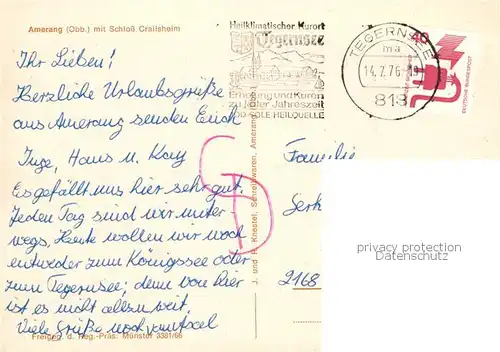 Amerang (Obb.) mit Schloß Crailsheim
Ihr Lieben!
Herzliche Urlaubsgrüße
aus Amerang senden Euch
Inge, Hans u. Kay
Es gefällt uns hier sehr gut.
Jeden Tag sind wir unter-
wegs. Heute wollen wir noch
entweder zum Königssee oder
zum Tegernsee; denn von hier
ist es nicht allzu weit.
Viele Grüße noch von Axel
Freigeg. d. Reg.-Präs. Münster 3381/66
J. und R. Knestel, Schreibwaren, Amerang (Obb.)
Heilklimatischer Kurort
Tegernsee
Erholung und Kuren
zu jeder Jahreszeit
JOD-SOLE-HEILQUELLE
TEGERNSEE
ma
14.7.76
818
40
DEUTSCHE BUNDESPOST
Familie
2168
privacy protection
Datenschutz